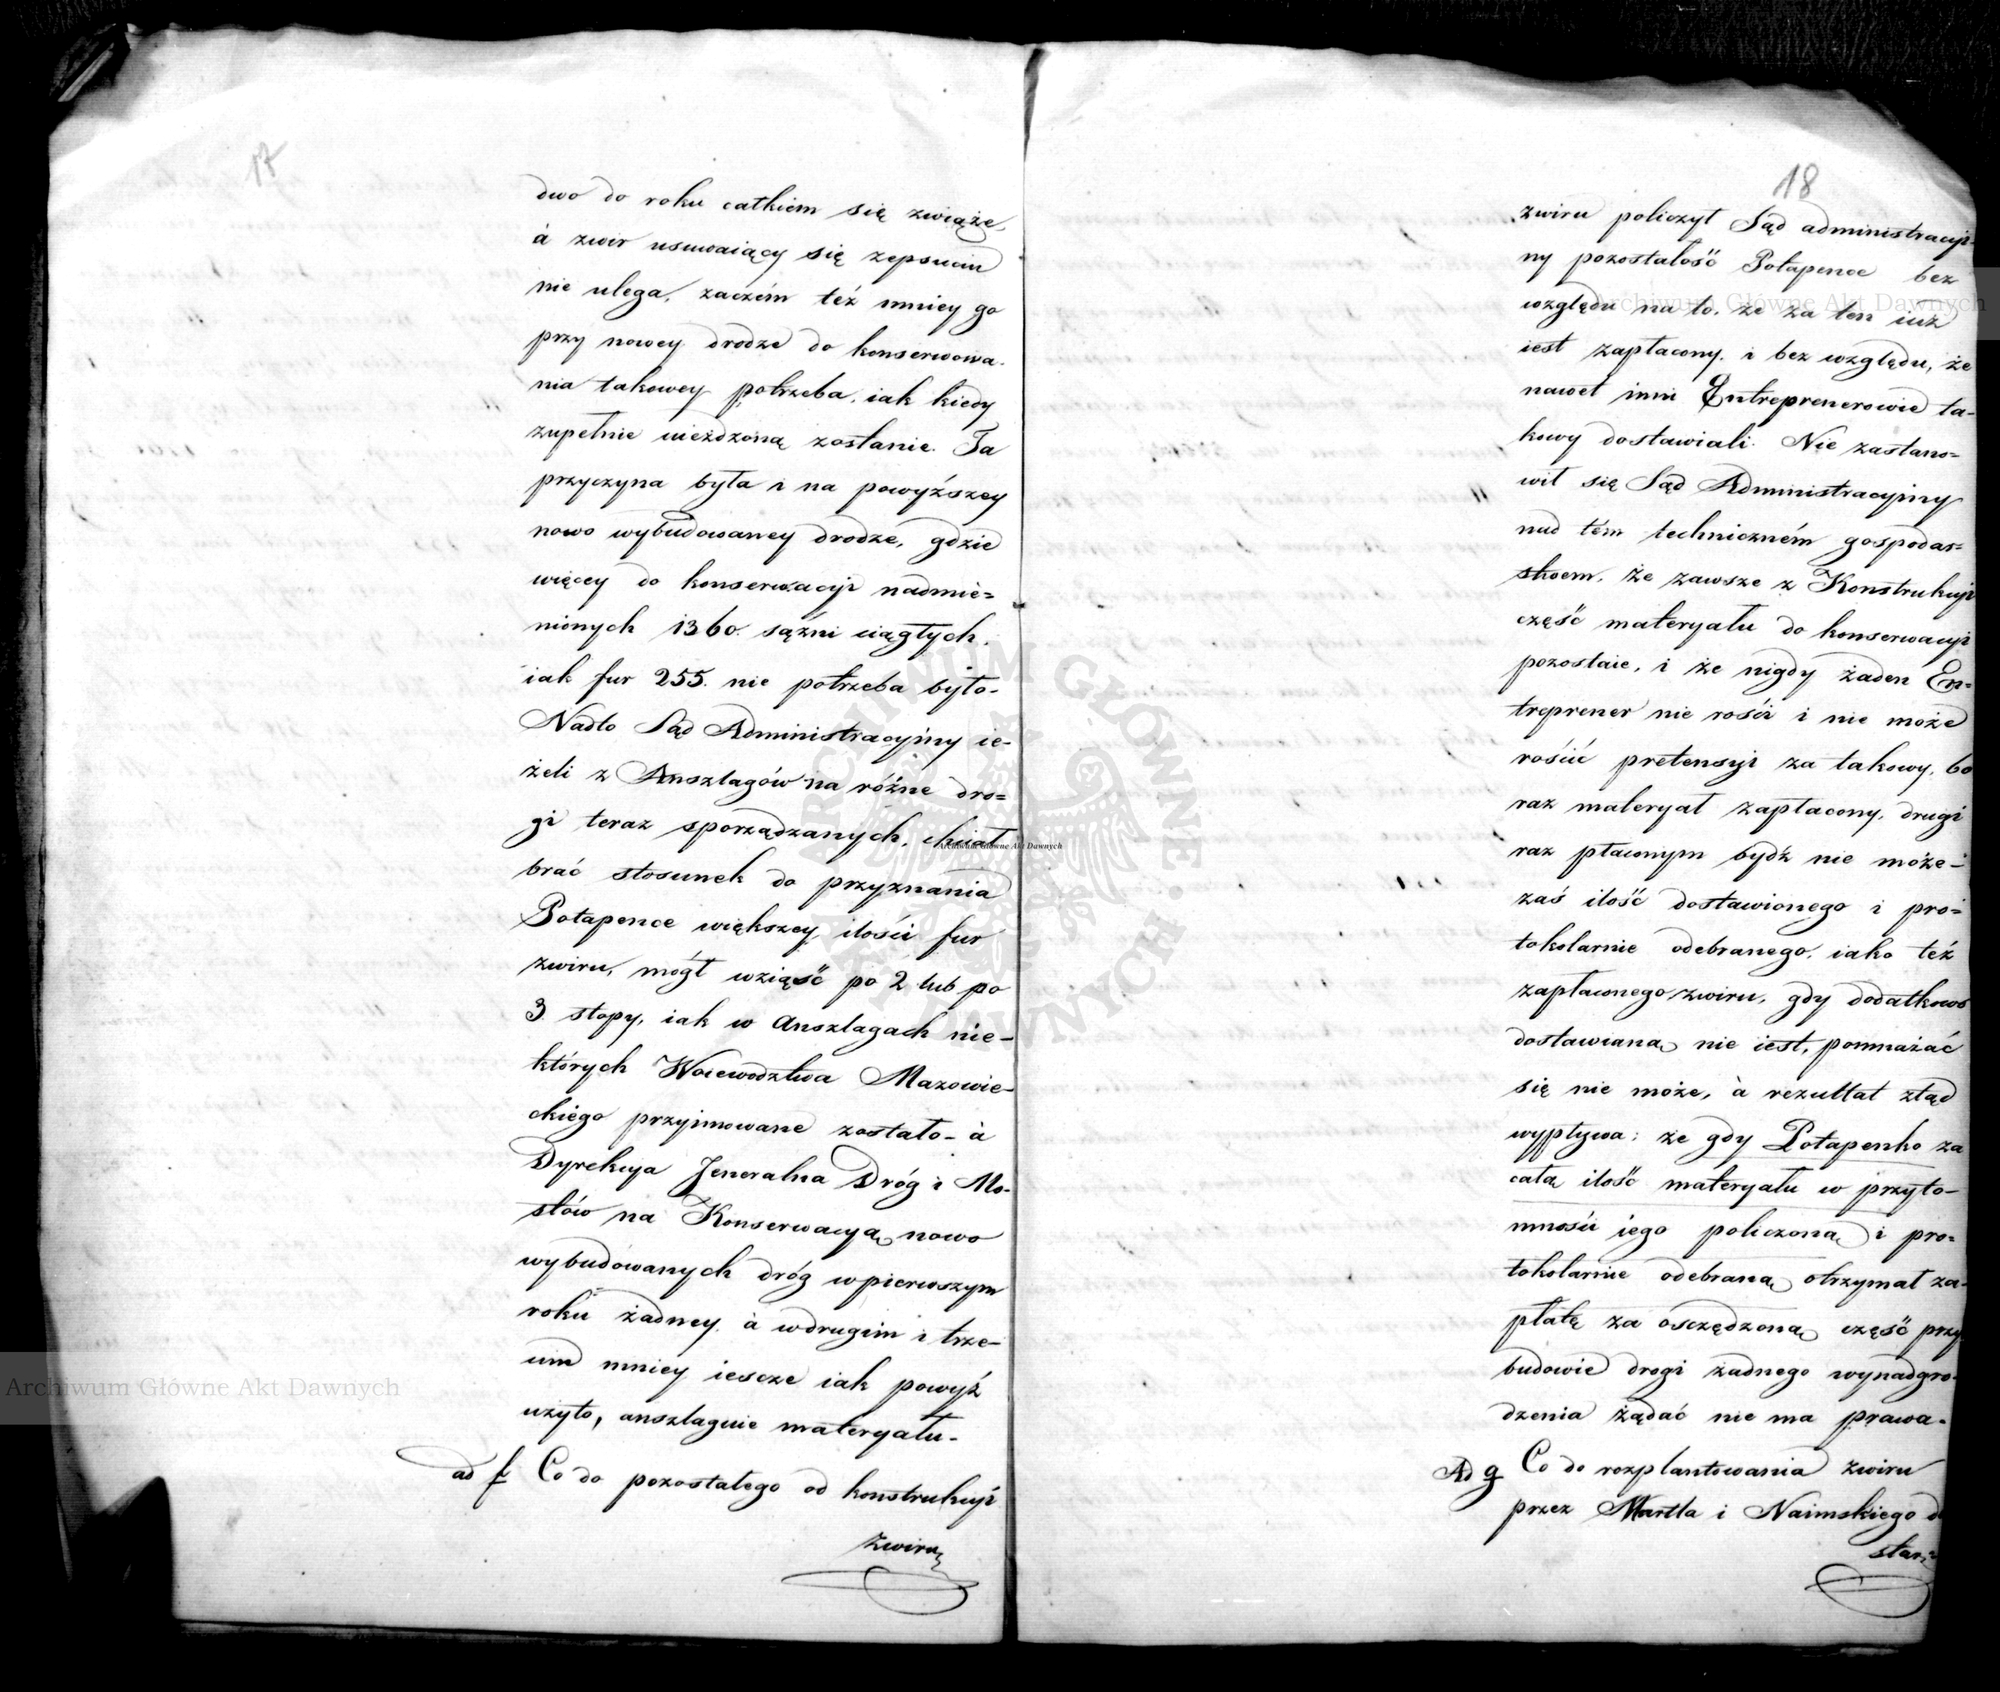 17
dwo do roku całkiem się zwiąże,
à zwir usuwaiący się zepsuciu
nie ulega, zaczém też mniey go
przy nowey drodze do konserwowa-
nia takowey potrzeba, iak kiedy
zupełnie uieżdzoną zostanie. Ta
przyczyna była i na powyższey
nowo wybudowaney drodze, gdzie
więcey do konserwacyi nadmie=
nionych 1360. sążni ciągłych,
iak fur 255. nie potrzeba było-
Nadto Sąd Administracyiny ie-
żeli z Anszlagów na różne dro=
gi teraz sporządzanych, chciał
brać stosunek do przyznania
Potapence większey ilości fur
zwiru, mógł wziąść po 2 lub po
3 stopy, iak w Anszlagach nie-
których Woiewodztwa Mazowie-
ckiego przyimowane zostało- à
Dyrekcya Jeneralna Dróg i Mo-
stów na Konserwacyą nowo
wybudowanych dróg w pierwszym
roku żadney, à w drugim i trze-
cim mniey iescze iak powyż
użyto, anszlaguie materyału-
ad f Co do pozostałego od konstrukcyi
zwiru
18
zwiru policzył Sąd administracyi-
ny pozostałość Potapence bez
względu na to, że za ten iuż
iest zapłacony, i bez względu, że
nawet inni Entreprenerowie ta-
kowy dostawiali. Nie zastano=
wił się Sąd Administracyiny
nad tém techniczném gospodar=
stwem, że zawsze z Konstrukcyi
część materyału do konserwacyi
pozostaie, i że nigdy żaden En=
treprener nie rości i nie może
rościć pretensyi za takowy, bo
raz materyał zapłacony, drugi
raz płaconym bydź nie może-
zaś ilość dostawionego i pro=
tokolarnie odebranego, iako też
zapłaconego zwiru, gdy dodatkowo
dostawianą nie iest, pomnażać
się nie może, à rezultat ztąd
wypływa: że gdy Potapenko za
całą ilość materyału w przyto-
mności iego policzoną i pro=
tokolarnie odebraną otrzymał za-
płatę za osczędzoną część przy
budowie drogi żadnego wynadgro-
dzenia żądać nie ma prawa.
Ad g Co do rozplantowania zwiru
przez Martla i Naimskiego do
star=
Archiwum Główne Akt Dawnych
Archiwum Główne Akt Dawnych
Archiwum Główne Akt Dawnych
ARCHIWUM GŁÓWNE AKT DAWNYCH